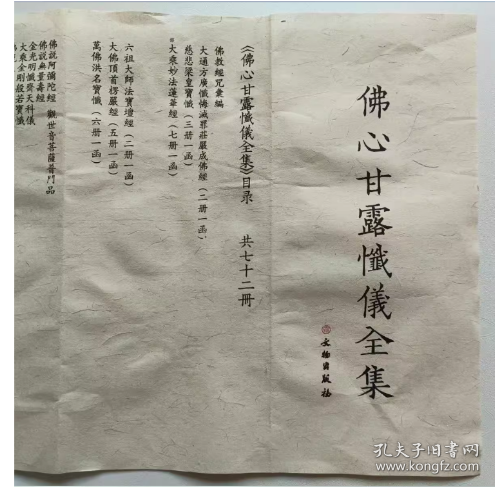 佛心甘露懺儀全集
文物出版社
《佛心甘露懺儀全集》目录 共七十二冊
佛教經咒彙編
大通方廣懺悔滅罪莊嚴成佛經（二册一函）
慈悲梁皇寶懺（三册一函）
大乘妙法蓮華經（七册一函）
六祖大師法寶壇經（二册一函）
大佛頂首楞嚴經（五册一函）
萬佛洪名寶懺（六册一函）
佛說阿彌陀經 觀世音菩薩普門品
佛說無量壽經
金光明懺齋天科儀
大乘金剛般若寶懺
孔夫子旧书网
www.kongfz.com